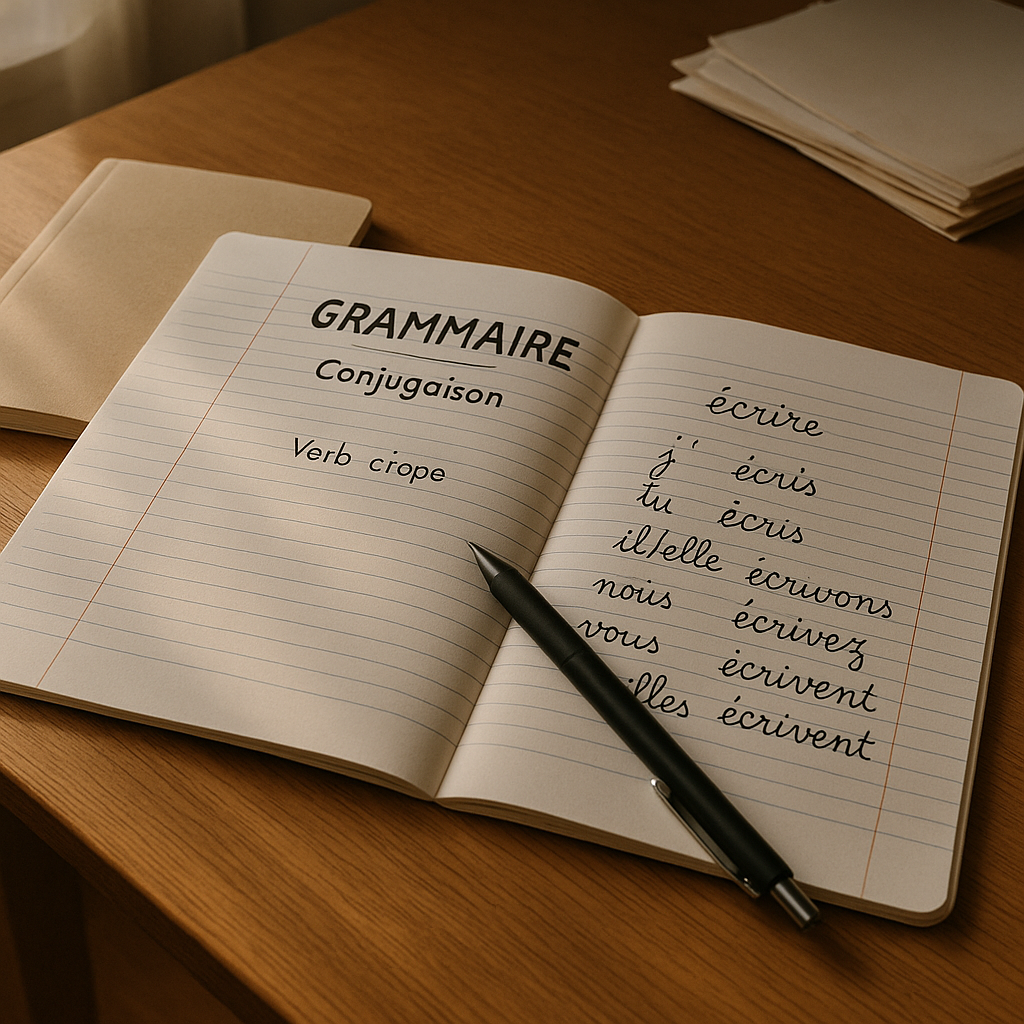 GRAMMAIRE
Conjugaison
Verb crope
écrire
j' écris
tu écris
il/elle écrivons
nous écrivez
vous écrivent
illes écrivent